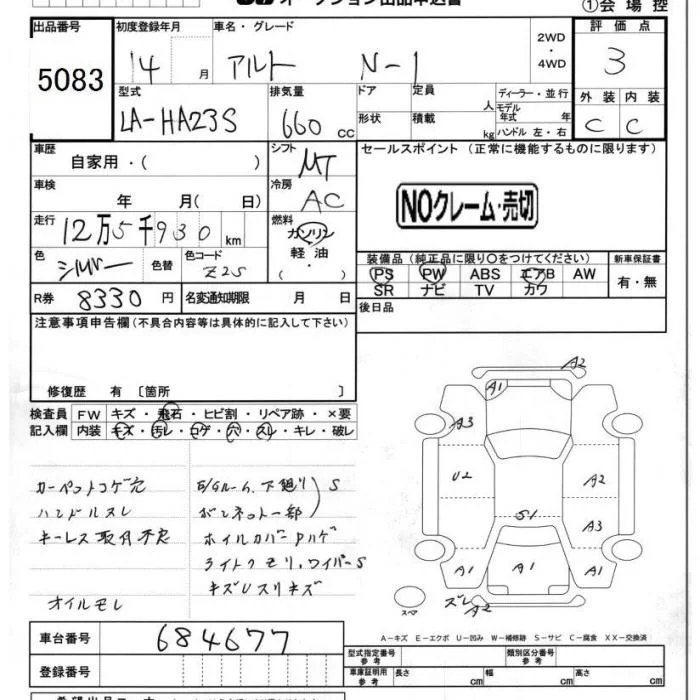 オークション出品申込書
①会場控
出品番号 初度登録年月 車名・グレード 2WD・4WD 評価点
5083 14月 アルト N-1 3
型式 排気量 ドア 定員 人 ディーラー・並行 外装 内装
LA-HA23S 660cc 形状 積載 kg モデル年式 年 ハンドル 左・右 C C
車歴 自家用・( ) シフト MT セールスポイント (正常に機能するものに限ります)
車検 年 月( 日) 冷房 AC
NOクレーム・売切
走行 12万5千930km 燃料 ガソリン 軽油・( )
色 シルバー 色替 色コード Z2S
装備品 (純正品に限り○をつけてください) 新車保証書
PS PW ABS エアB AW 有・無
SR ナビ TV カワ
R券 8330円 名変通知期限 月 日
後日品
注意事項申告欄 (不具合内容等は具体的に記入して下さい)
修復歴 有 [箇所 ]
検査員 FW キズ・飛石・ヒビ割・リペア跡・×要
記入欄 内装 キズ・汚レ・コゲ・穴・スレ・キレ・破レ
カーペットコゲ穴
ハンドルスレ
キーレス取月不定
オイルモレ
E/Gルーム、下廻り)S
ボンネット一部
ホイルカバーPハゲ
ライトクモリ、ワイパーS
キズUスリキズ
A2
A1
A3
U2 A2
S1
A3
A1 A1 A1
スペア ズレ A2
A-キズ E-エクボ U-凹み W-補修跡 S-サビ C-腐食 XX-交換済
車台番号 684677
登録番号
型式指定番号 参考 類別区分番号 参考
車庫証明用 参考 長さ cm 幅 cm 高さ cm